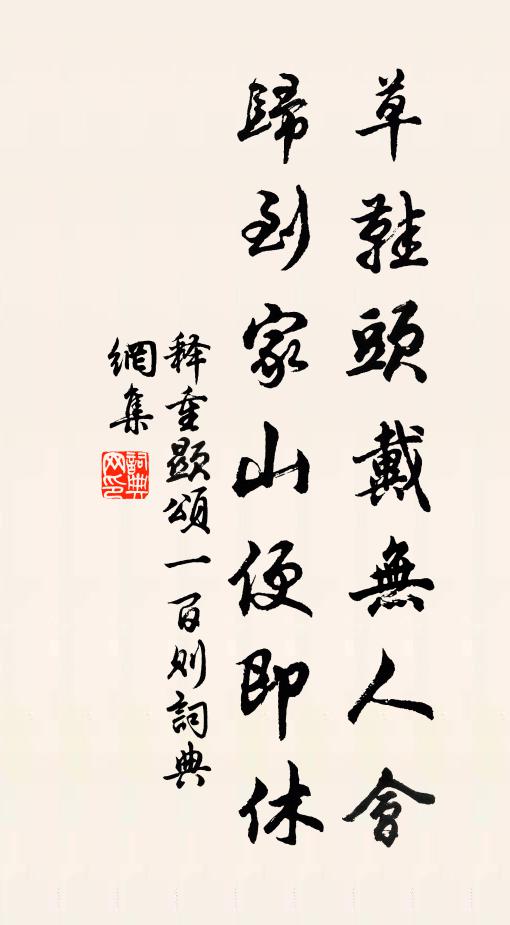 草鞋頭戴無人會
歸到家山便即休
释重顯頌一百则詞典
網集
詞典
网印